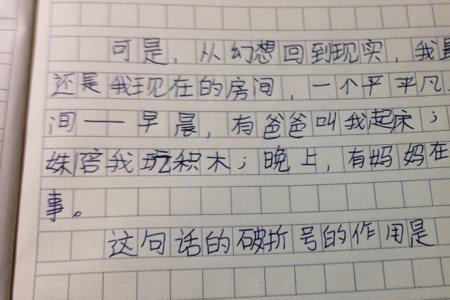 可是，从幻想回到现实，我
还是我现在的房间，一个平平凡
间——早晨，有爸爸叫我起床；
妹陪我玩积木；晚上，有妈妈在
事。
这句话的破折号的作用是